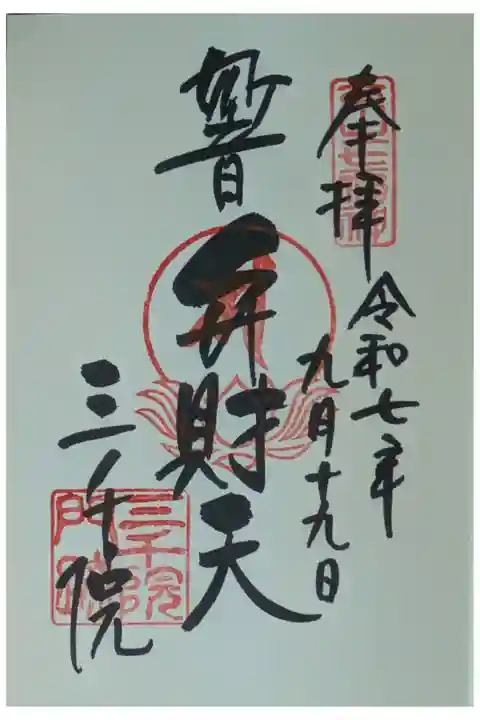 奉拝
令和七年
九月十九日
妙音弁財天
三千院
三千院
門跡